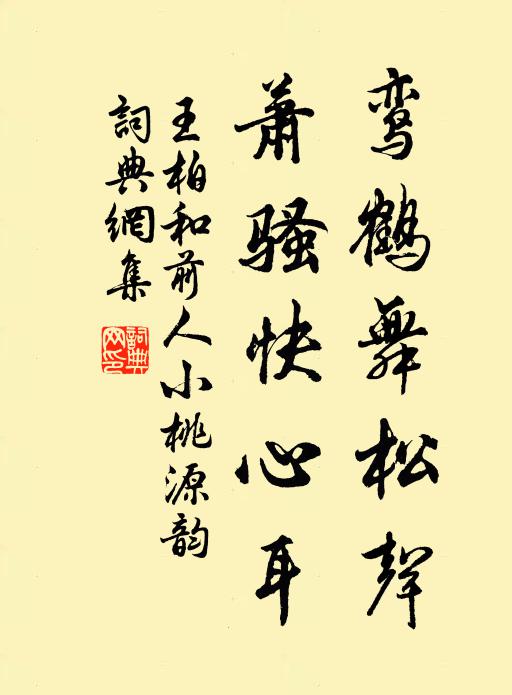 鸾鹤舞松聲
萧骚快心耳
王柏和前人小桃源韵
詞典網集
詞典網印